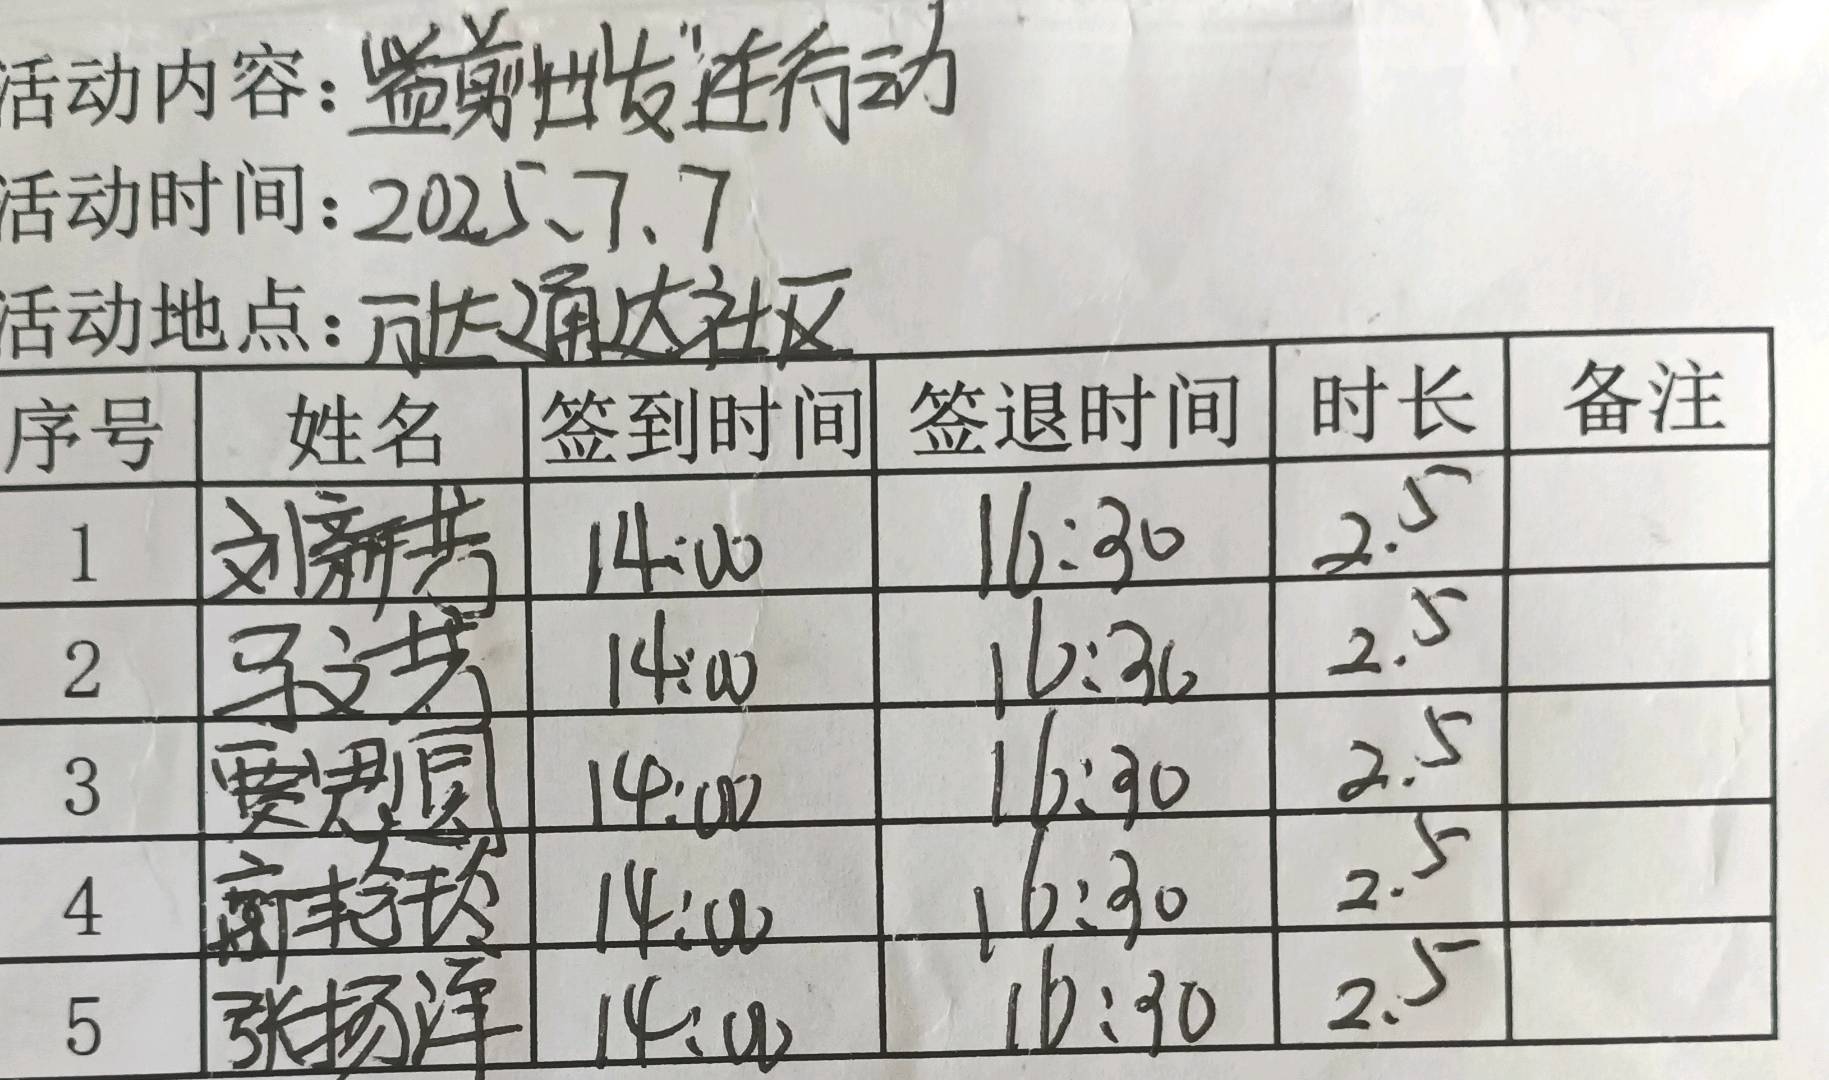 活动内容:益剪出发"连行动
活动时间:2025、7、7
活动地点:万达通达社区
序号 姓名 签到时间 签退时间 时长 备注
1 刘新芳 14:00 16:30 2.5
2 马文芳 14:00 16:30 2.5
3 贾思圆 14:00 16:30 2.5
4 14:00 16:30 2.5
5 张扬洋 14:00 16:30 2.5